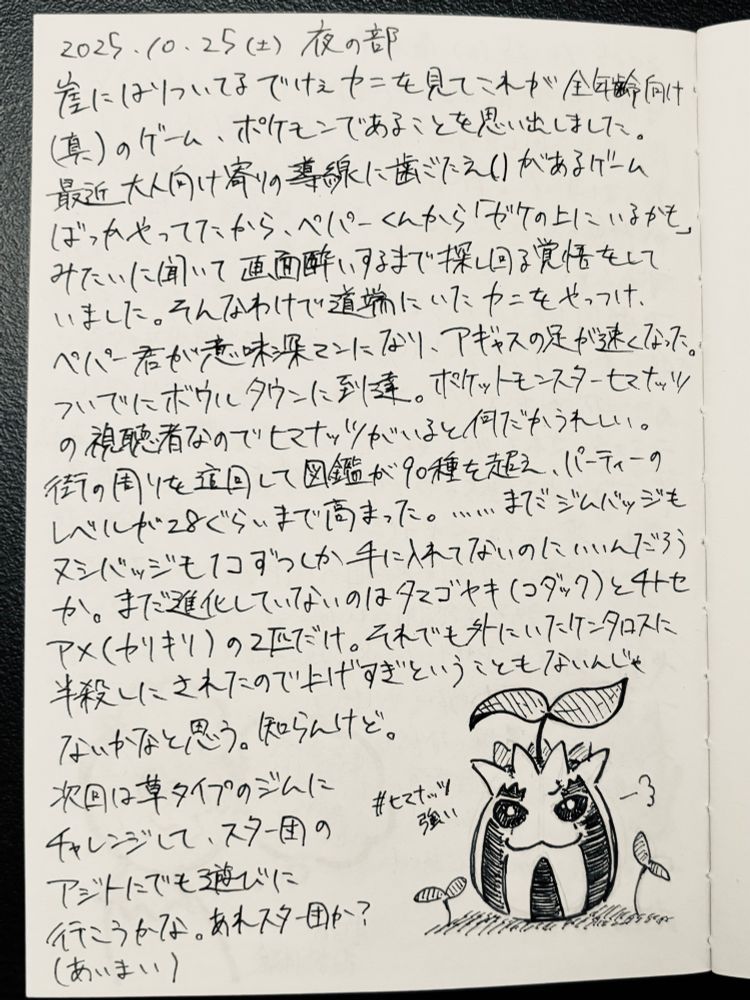 2025.10.25(土) 夜の部
崖にはりついてるでけぇカニを見てこれが全年齢向け
(真)のゲーム、ポケモンであることを思い出しました。
最近大人向け寄りの導線に歯ごたえ()があるゲーム
ばっかやってたから、ペパーくんから「ガケの上にいるかも」
みたいに聞いて画面酔いするまで探し回る覚悟をして
いました。そんなわけで道端にいたカニをやっつけ、
ペパー君が意味深マンになり、アギャスの足が速くなった。
ついでにボウルタウンに到達。ポケットモンスターヒマナッツ
の視聴者なのでヒマナッツがいると何だかうれしい。
街の周りを巡回して図鑑が90種を超え、パーティーの
レベルが28ぐらいまで高まった。……まだジムバッジも
ヌシバッジも1コずつしか手に入れてないのにいいんだろう
か。まだ進化していないのはタマゴヤキ(コダック)とチトセ
アメ(カリキリ)の2匹だけ。それでも外にいたケンタロスに
半殺しにされたので上げすぎということもないんじゃ
ないかなと思う。知らんけど。
次回は草タイプのジムに
チャレンジして、スター団の
アジトにでも遊びに
行こうかな。あれスター団か?
(あいまい)
#ヒマナッツ
強い